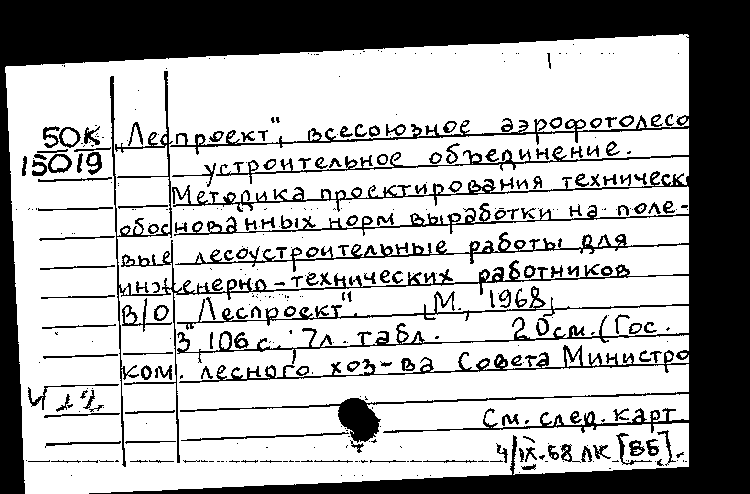 50К „Леспроект", всесоюзное аэрофотолесо
15019 устроительное объединение.
Методика проектирования техническ
обоснованных норм выработки на поле-
вые лесоустроительные работы для
инженерно-технических работников
В/О „Леспроект". [М., 1968]
3, 106 с.; 7л. табл. 20см. (Гос.
ком. лесного хоз-ва Совета Министро
См. след. карт
4/IX-68 ЛК [ВБ].